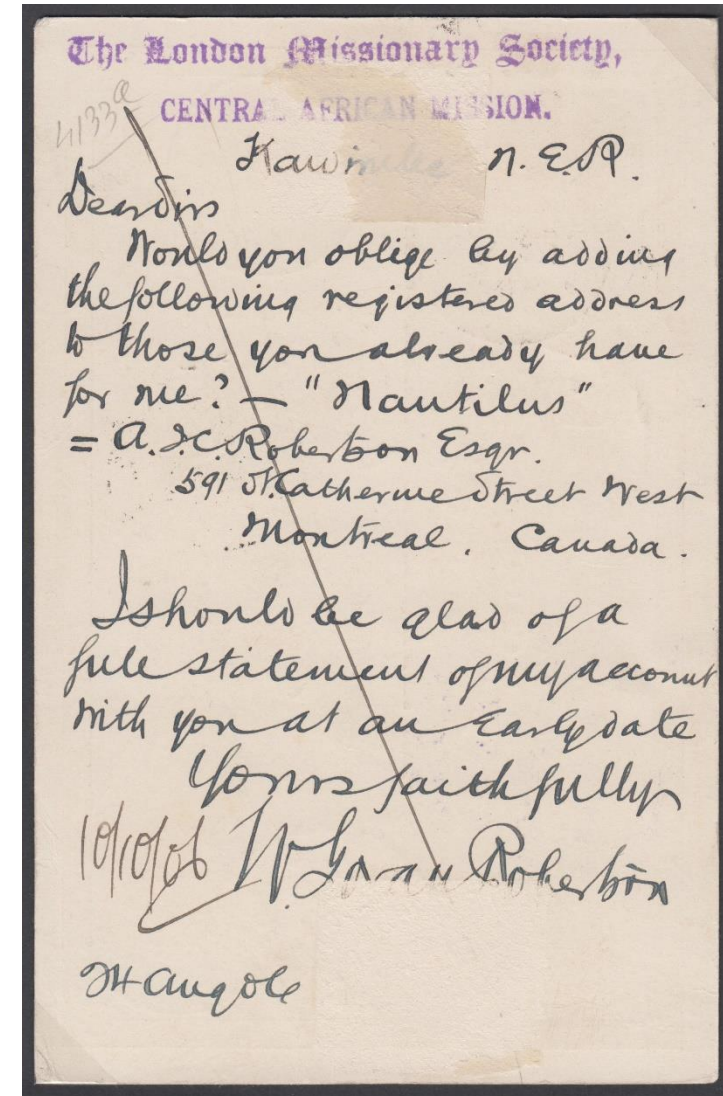 The London Missionary Society,
CENTRAL AFRICAN MISSION.
4133a
Kawimbe N.E.R.
Dear Sirs
Would you oblige by adding
the following registered address
to those you already have
for me? — "Nautilus"
= A. Robertson Esqr.
591 St. Catherine Street West
Montreal. Canada.
I should be glad of a
full statement of my account
with you at an Early date
Yours faithfully
10/10/06 W. Govan Robertson